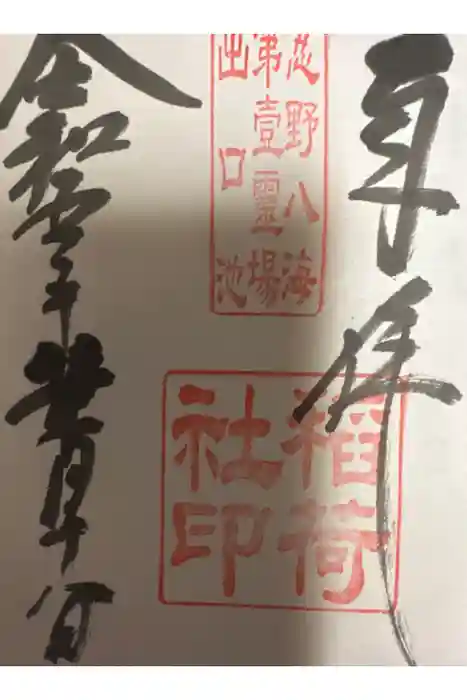 拝
忍野八海
第壹靈場
出口池
稲荷
社印
令和四年葉月十八日